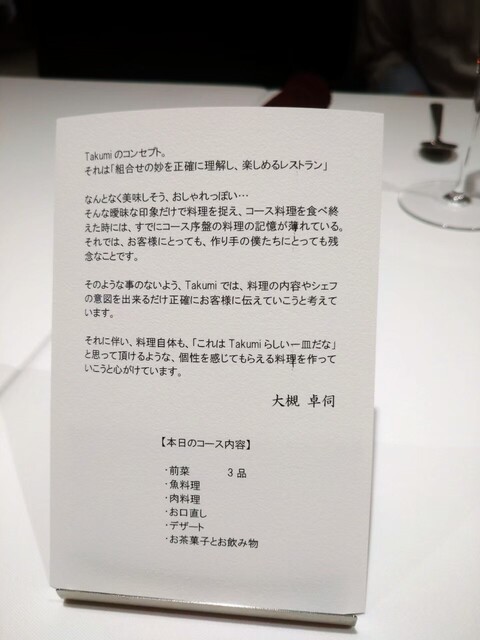 Takumiのコンセプト。
それは「組合せの妙を正確に理解し、楽しめるレストラン」
なんとなく美味しそう、おしゃれっぽい…
そんな曖昧な印象だけで料理を捉え、コース料理を食べ終
えた時には、すでにコース序盤の料理の記憶が薄れている。
それでは、お客様にとっても、作り手の僕たちにとっても残
念なことです。
そのような事のないよう、Takumiでは、料理の内容やシェフ
の意図を出来るだけ正確にお客様に伝えていこうと考えて
います。
それに伴い、料理自体も、「これはTakumiらしい一皿だな」
と思って頂けるような、個性を感じてもらえる料理を作って
いこうと心がけています。
大槻 卓伺
【本日のコース内容】
・前菜 3品
・魚料理
・肉料理
・お口直し
・デザート
・お茶菓子とお飲み物